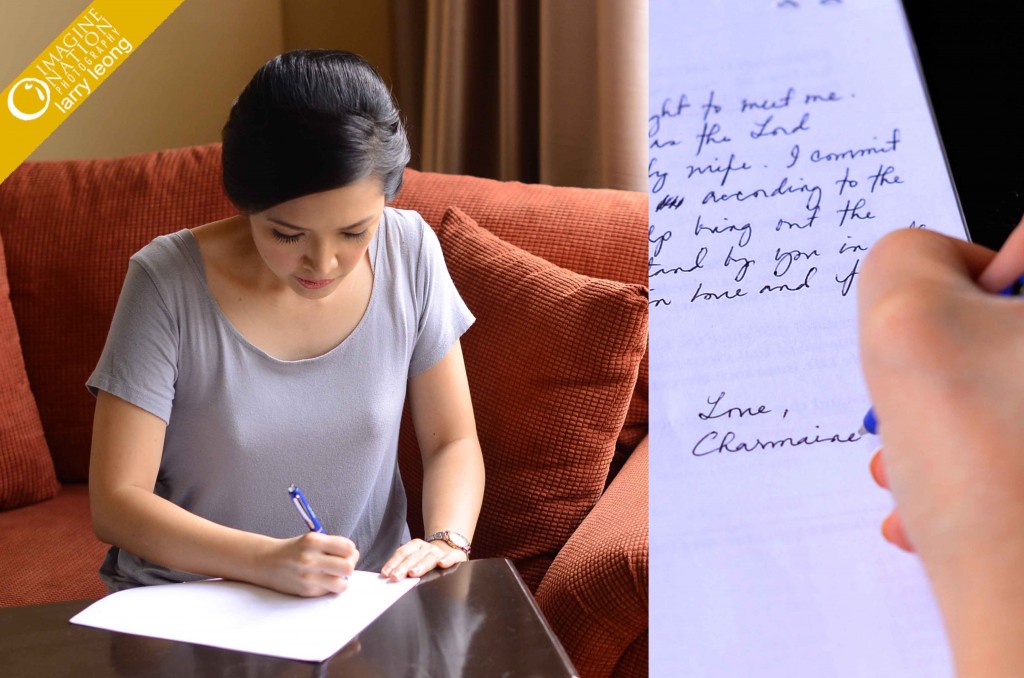 IMAGINE
NATION
PHOTOGRAPHY
larry leong
to meet me.
the Lord
wife. I commit
according to the
bring out the
by you in
love and
Love,
Charmaine